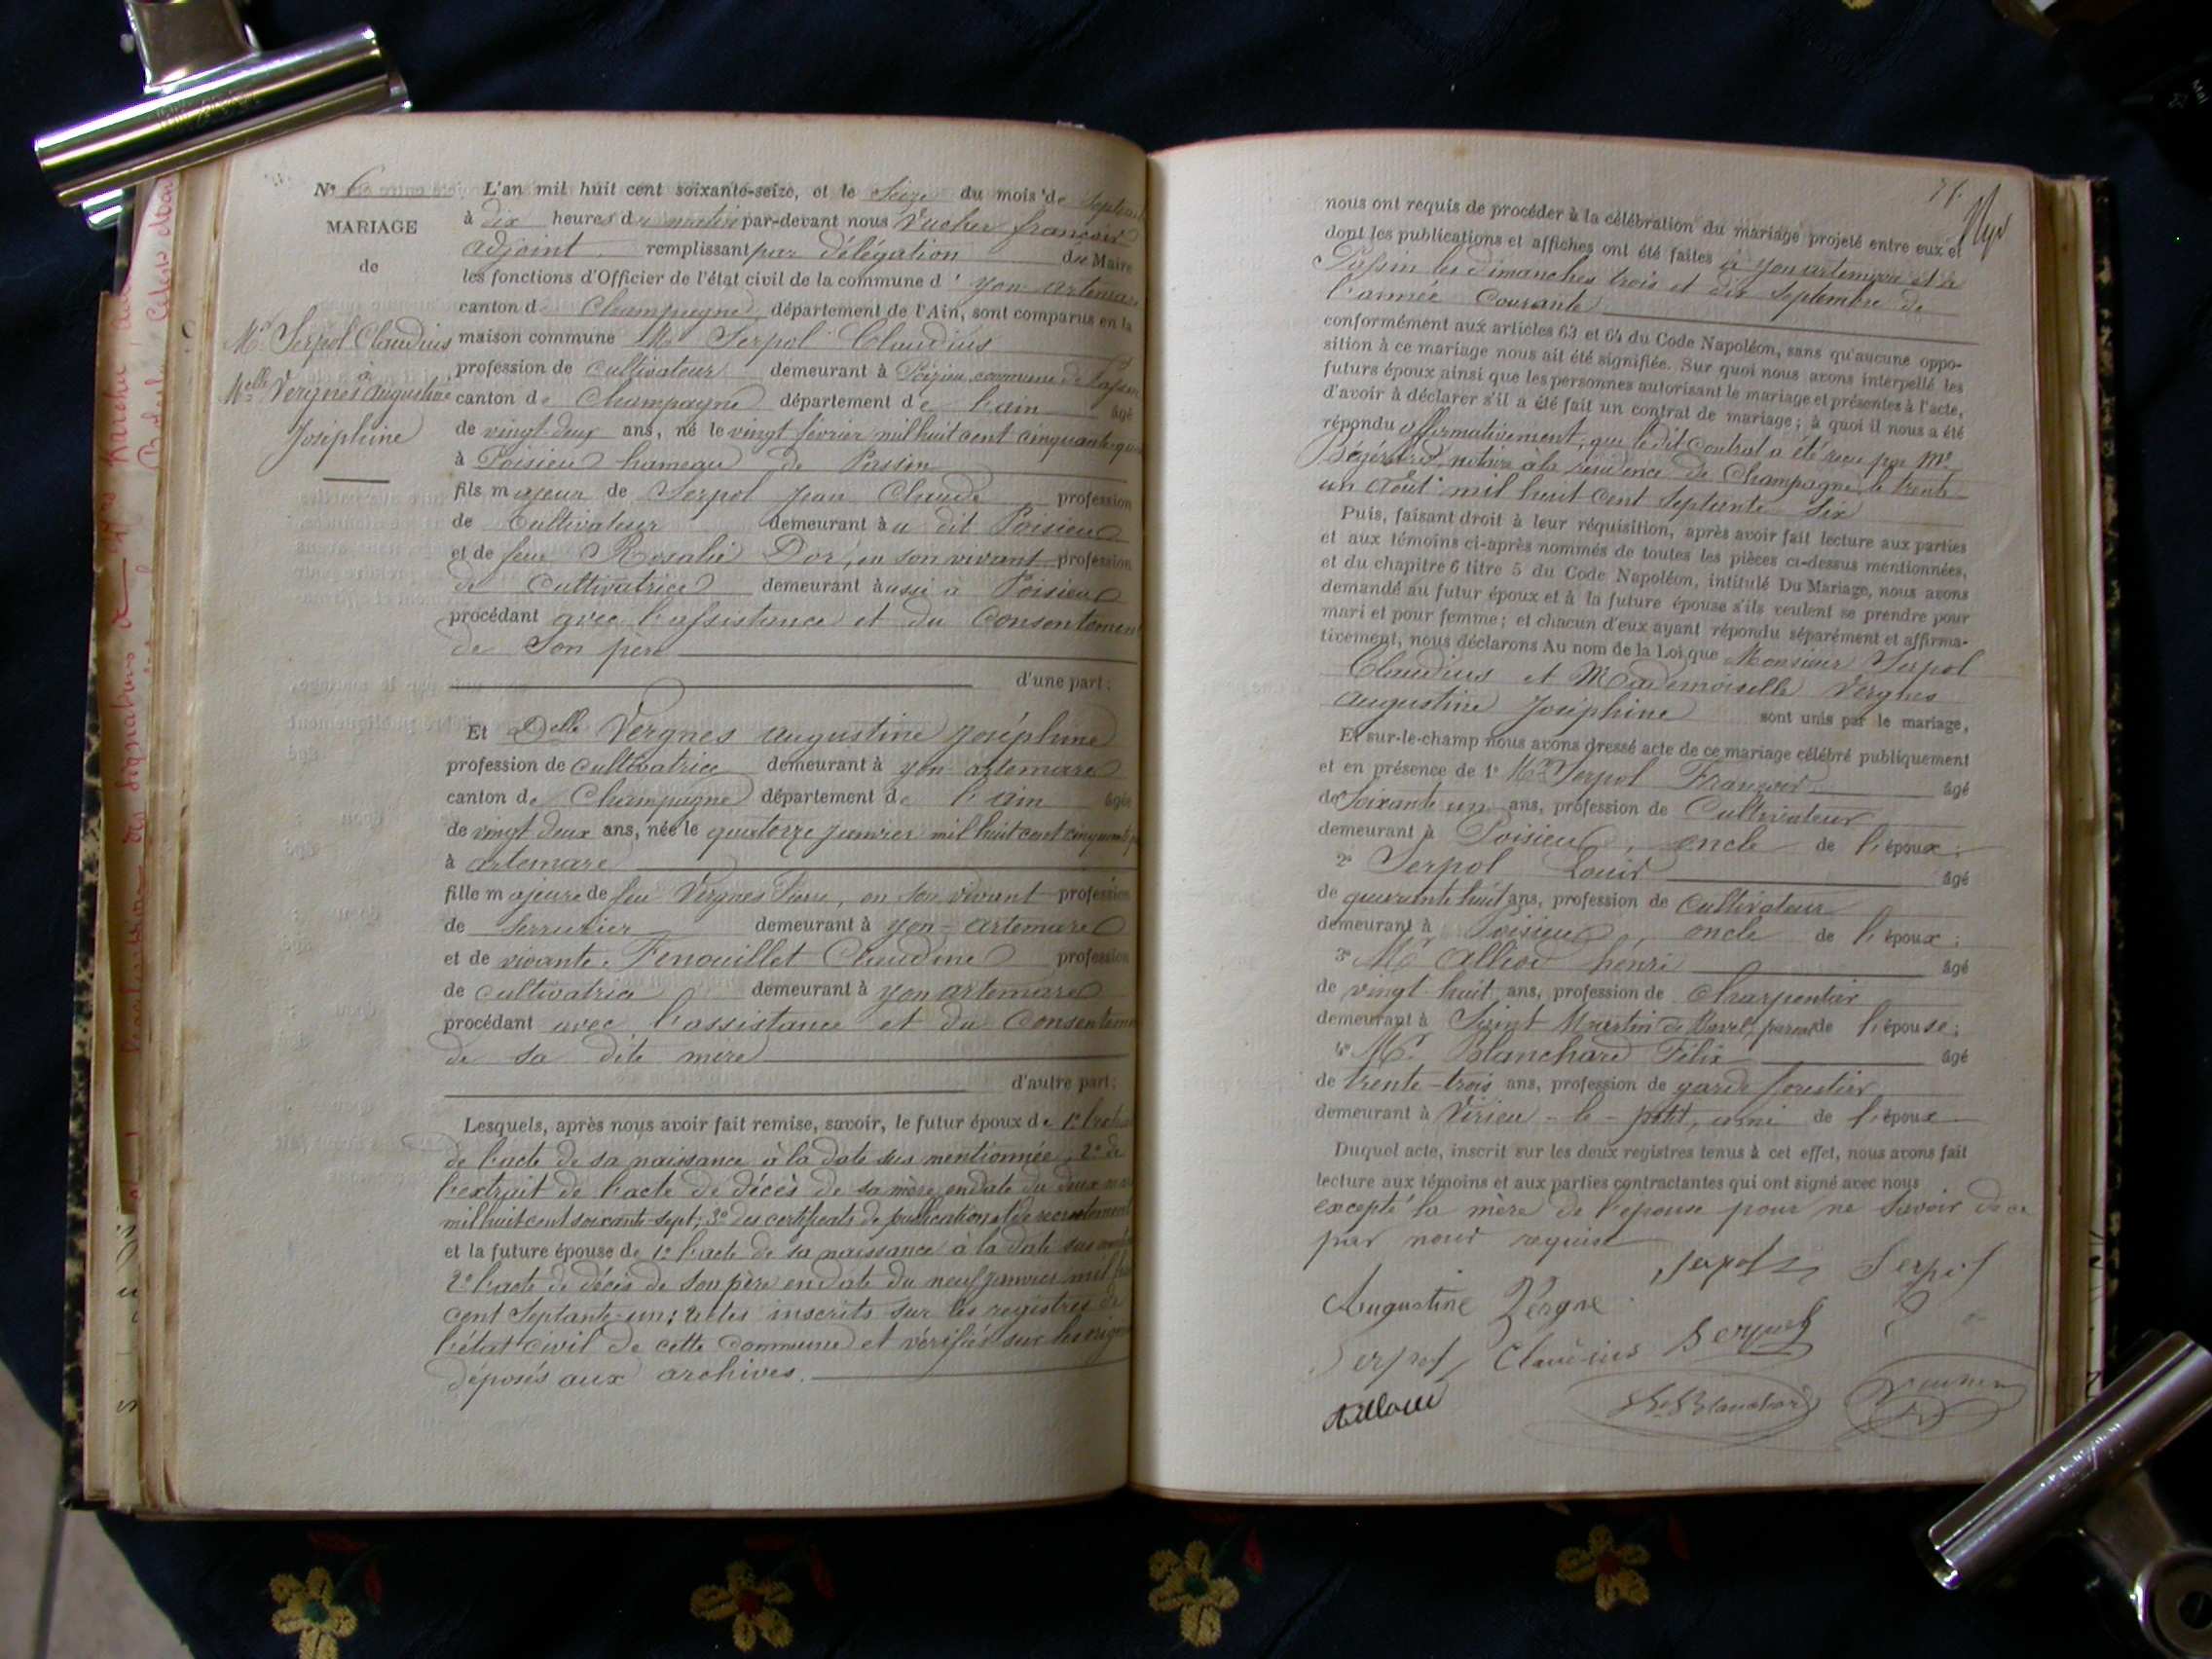 Nº 6
MARIAGE
de
Mr Serpol Claudius
à
Melle Vergnes Augustine
Joséphine
L'an mil huit cent soixante-seize, et le Seize du mois de Septem
à dix heures du matin par-devant nous Vucher françois
adjoint remplissant par délégation du Maire
les fonctions d'Officier de l'état civil de la commune d' yon artemare
canton de Champagne département de l'Ain, sont comparus en la
maison commune Mr Serpol Claudius
profession de cultivateur demeurant à Poisieu, commune de Passin
canton de Champagne département de l'ain âgé
de vingt-deux ans, né le vingt février mil huit cent cinquante-qua
à Poisieu hameau de Passin
fils majeur de Serpol Jean Claude profession
de Cultivateur demeurant àu dit Poisieu
et de feue Rosalie Dor, en son vivant profession
de Cultivatrice demeurant àussi à Poisieu
procédant avec l'assistance et du Consentemen
de Son père
d'une part;
Et Delle Vergnes augustine joséphine
profession de cultivatrice demeurant à yon artemare
canton de Champagne département de l'ain âgée
de vingt deux ans, née le quatorze janvier mil huit cent cinquante
à artemare
fille majeure de feu Vergnes Pierre, en son vivant profession
de serrurier demeurant à yon-artemare
et de vivante Fenouillet Claudine profession
de cultivatrice demeurant à yon artemare
procédant avec l'assistance et du Consentem
de sa dite mère
d'autre part;
Lesquels, après nous avoir fait remise, savoir, le futur époux de 1º
de l'acte de sa naissance à la date sus mentionnée, 2º de
l'extrait de l'acte de décès de sa mère en date du deux
mil huit cent soixante-sept; 3º des certificats de publication et de recrutement
et la future épouse de 1º l'acte de sa naissance à la date sus
2º l'acte de décès de son père en date du neuf janvier mil
cent Septante-un; actes inscrits sur les registres de
l'état civil de cette commune et vérifiés sur les
déposés aux archives.
71.
nous ont requis de procéder à la célébration du mariage projeté entre eux et
dont les publications et affiches ont été faites à yon artemare et à
Passin les dimanches trois et dix Septembre de
l'année Courante
conformément aux articles 63 et 64 du Code Napoléon, sans qu'aucune oppo-
sition à ce mariage nous ait été signifiée. Sur quoi nous avons interpellé les
futurs époux ainsi que les personnes autorisant le mariage et présentes à l'acte,
d'avoir à déclarer s'il a été fait un contrat de mariage; à quoi il nous a été
répondu affirmativement, que le dit Contrat a été reçu par Me
notaire à la résidence de Champagne le trente
un août mil huit cent Septante Six
Puis, faisant droit à leur réquisition, après avoir fait lecture aux parties
et aux témoins ci-après nommés de toutes les pièces ci-dessus mentionnées,
et du chapitre 6 titre 5 du Code Napoléon, intitulé Du Mariage, nous avons
demandé au futur époux et à la future épouse s'ils veulent se prendre pour
mari et pour femme; et chacun d'eux ayant répondu séparément et affirma-
tivement, nous déclarons Au nom de la Loi que Monsieur Serpol
Claudius et Mademoiselle Vergnes
Augustine Joséphine sont unis par le mariage,
Et sur-le-champ nous avons dressé acte de ce mariage célébré publiquement
et en présence de 1º Mr Serpol François âgé
de Soixante un ans, profession de Cultivateur
demeurant à Poisieu, oncle de l'époux;
2º Serpol Louis âgé
de quarante huit ans, profession de cultivateur
demeurant à Poisieu, oncle de l'époux;
3º Mr Allioe henri âgé
de vingt huit ans, profession de Charpentier
demeurant à Saint Martin de Bavel, parent de l'épouse;
4º Mr Blanchard Félix âgé
de trente-trois ans, profession de garde forestier
demeurant à Virieu-le-petit, ami de l'époux
Duquel acte, inscrit sur les deux registres tenus à cet effet, nous avons fait
lecture aux témoins et aux parties contractantes qui ont signé avec nous
excepté la mère de l'épouse pour ne Savoir de ce
par nous requise
Serpol Serpol
Augustine Vergne
Serpol Claudius Serpol
Blanchard